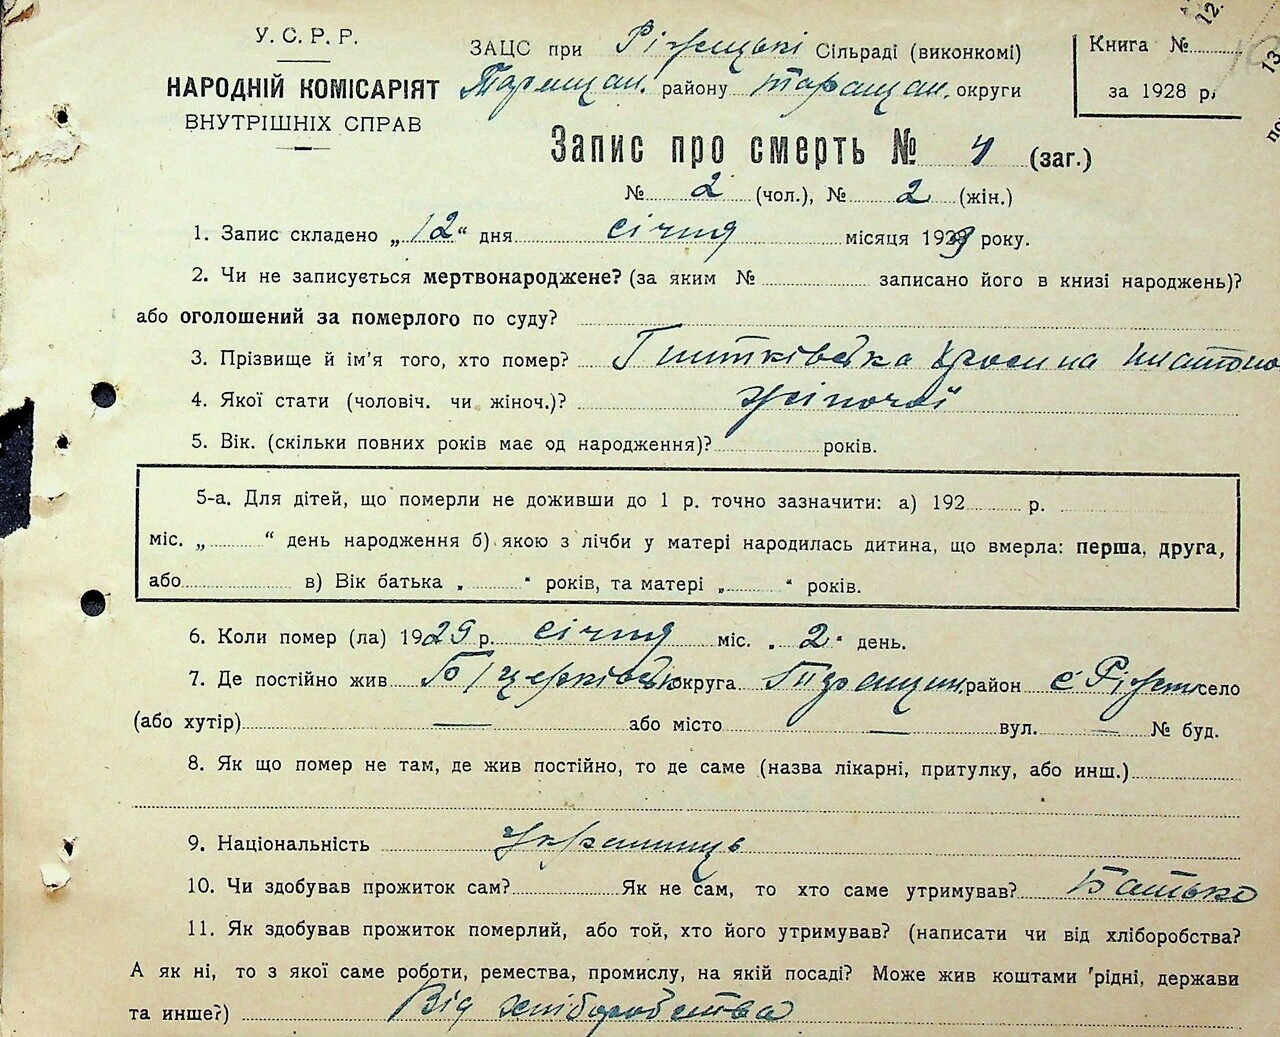 У. С. Р. Р.
НАРОДНІЙ КОМІСАРІЯТ
ВНУТРІШНІХ СПРАВ
ЗАЦС при Сільраді (виконкомі)
Таращан. району Таращан. округи
Книга №
за 1928 р.
Запис про смерть № 4 (заг.)
№ 2 (чол.), № 2 (жін.)
1. Запис складено „12“ дня січня місяця 1929 року.
2. Чи не записується мертвонароджене? (за яким № записано його в книзі народжень)?
або оголошений за померлого по суду?
3. Прізвище й ім'я того, хто помер?
4. Якої стати (чоловіч. чи жіноч.)? жіночої
5. Вік. (скільки повних років має од народження)? років.
5-а. Для дітей, що померли не доживши до 1 р. точно зазначити: а) 192 р.
міс. „ “ день народження б) якою з лічби у матері народилась дитина, що вмерла: перша, друга,
або в) Вік батька „ “ років, та матері „ “ років.
6. Коли помер (ла) 1929 р. січня міс. „2“ день.
7. Де постійно жив Б/церківська округа Таращан. район с. село
(або хутір) — або місто — вул. — № буд.
8. Як що помер не там, де жив постійно, то де саме (назва лікарні, притулку, або инш.)
9. Національність українець
10. Чи здобував прожиток сам? Як не сам, то хто саме утримував? Батько
11. Як здобував прожиток померлий, або той, хто його утримував? (написати чи від хліборобства?
А як ні, то з якої саме роботи, ремества, промислу, на якій посаді? Може жив коштами рідні, держави
та инше?) Від хліборобства